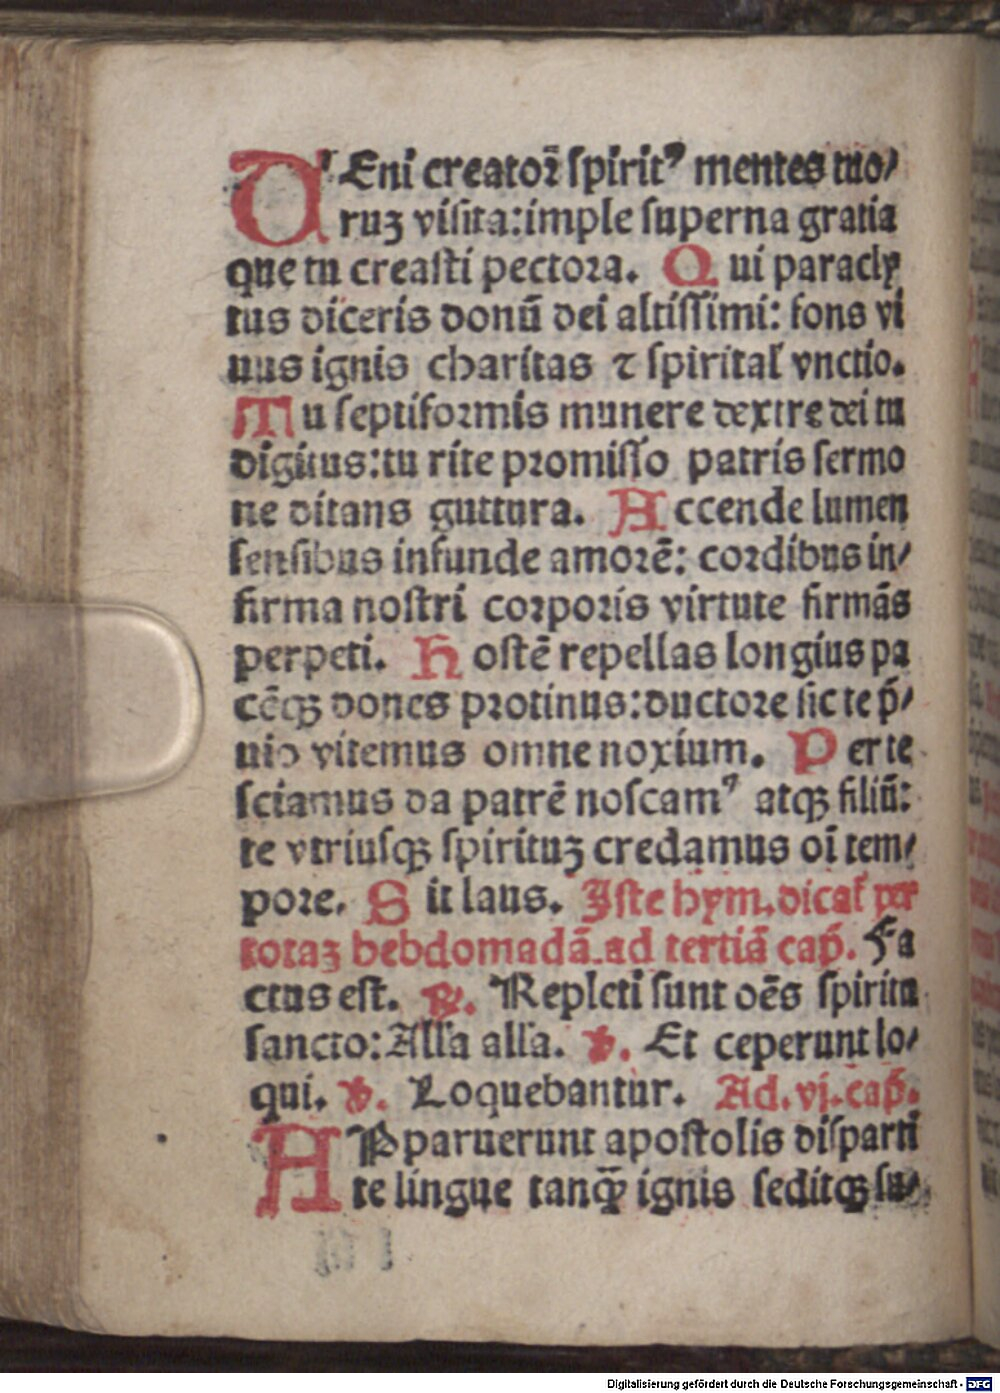 VEni creatoꝛ̄ ſpiritꝰ mentes tuo/
ruꝫ viſita: imple ſuperna gratia
que tu creaſti pectoꝛa. Qui paracly
tus diceris donū dei altiſſimi: fons vi
uus ignis charitas ⁊ ſpiritaƚ vnctio.
Tu ſeptifoꝛmis munere dextre dei tu
digitus: tu rite pꝛomiſſo patris ſermo
ne ditans guttura. Accende lumen
ſenſibus infunde amoꝛē: coꝛdibus in/
firma noſtri coꝛpoꝛis virtute firmās
perpeti. Hoſtē repellas longius pa
cēqꝫ dones pꝛotinus: ductoꝛe ſic te p̄/
uio vitemus omne noxium. Per te
ſciamus da patrē noſcamꝰ atqꝫ filiū:
te vtriuſqꝫ ſpirituꝫ credamus oī tem/
poꝛe. Sit laus. Iſte hym. dicaƚ per
totaꝫ hebdomadā. ad tertiā cap̄. Fa
ctus eſt. ℟. Repleti ſunt oēs ſpiritu
ſancto: Alla alla. ℣. Et ceperunt lo/
qui. ℣. Loquebantur. Ad. vj. cap̄.
APparuerunt apoſtolis diſparti
te lingue tanꝙ̄ ignis ſeditqꝫ ſu/
Digitalisierung gefördert durch die Deutsche Forschungsgemeinschaft - DFG